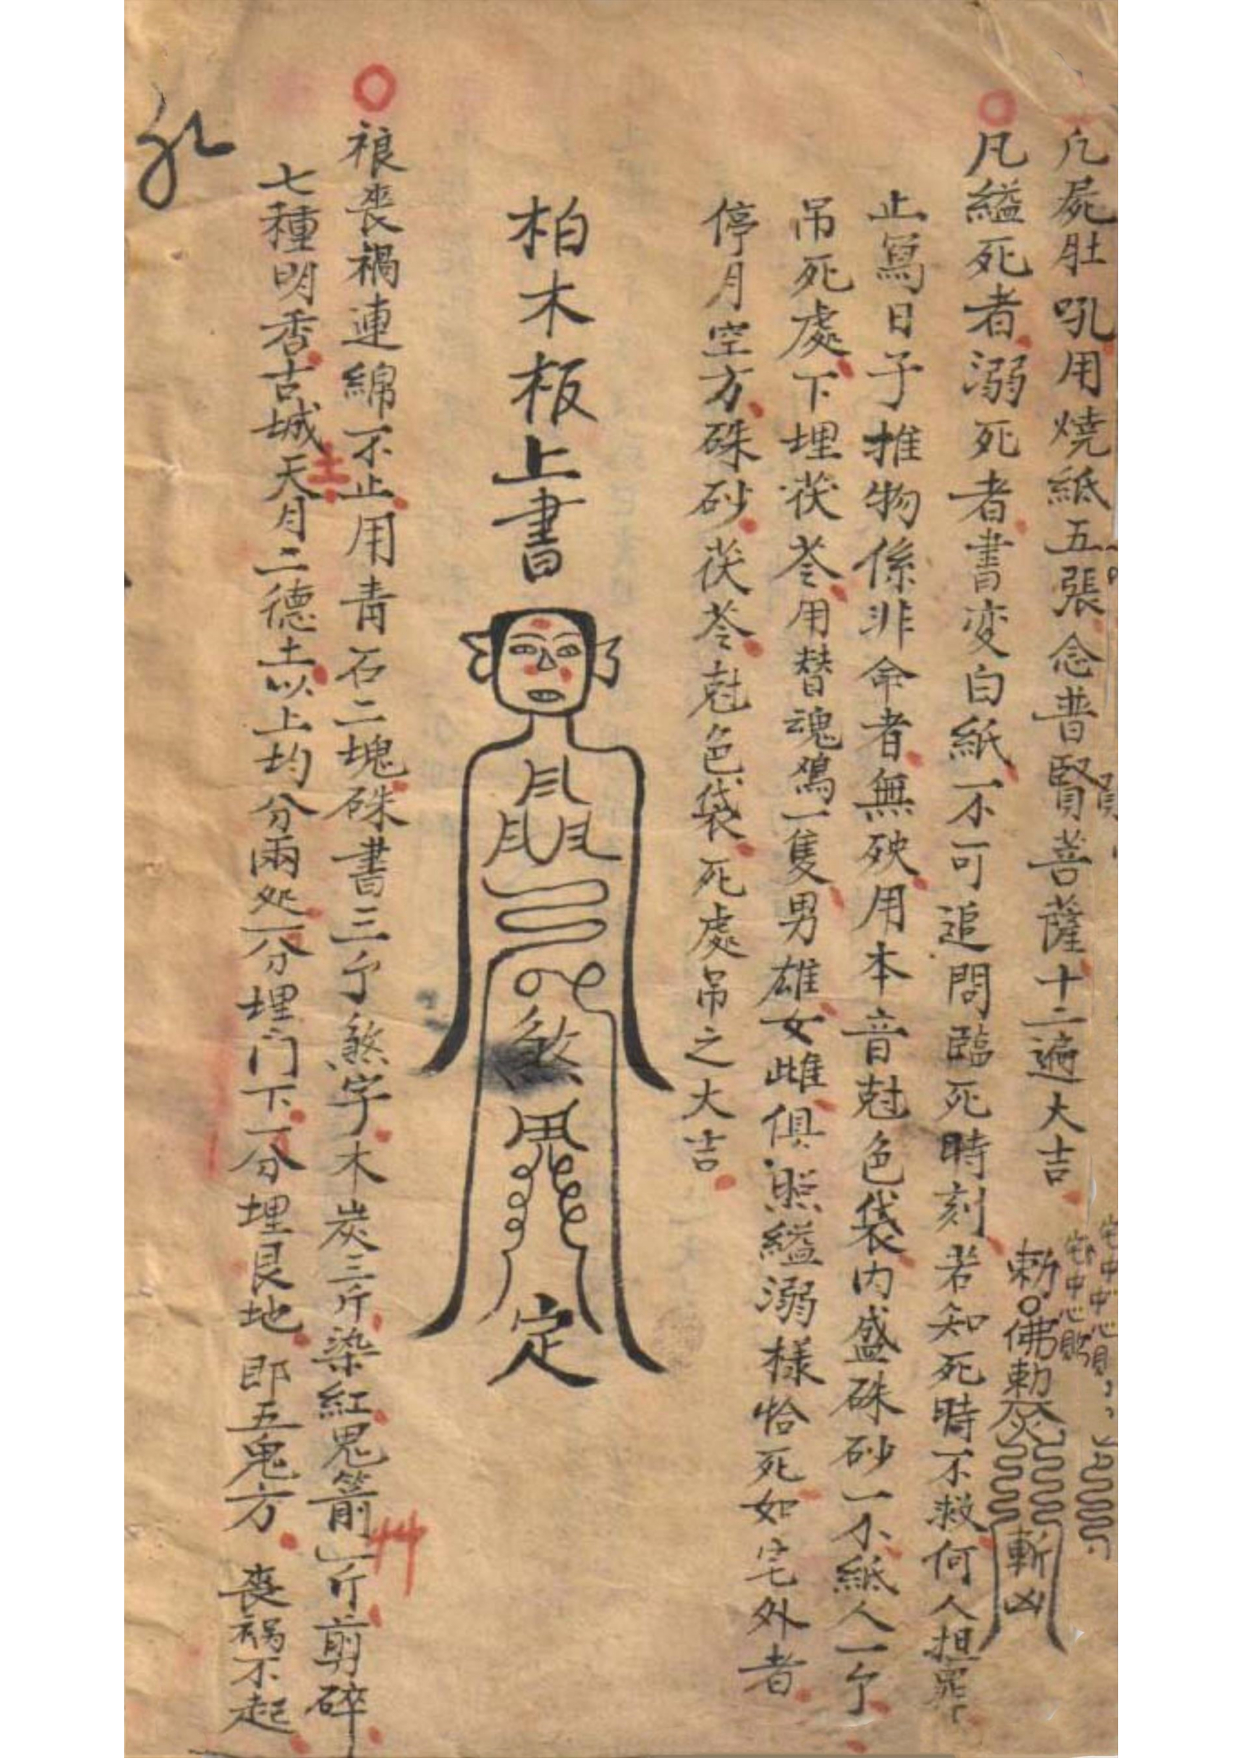 凢屍肚吼用燒紙五張念普賢菩薩十二遍大吉
宅中中心貝
宅中心貼
勅佛勅
斬凶
凡縊死者溺死者書变白紙一不可追問臨死時刻若知死時不救何人担罪
止寫日子推物係非命者無殃用本音尅色袋內盛硃砂一个紙人一个
吊死處下埋茯苓用替魂鷄一隻男雄女雌俱照縊溺樣恰死如宅外者
停月空方硃砂茯苓尅色袋死處吊之大吉
柏木板上書
月
月月
煞
鬼
定
禳喪禍連綿不止用青石二塊硃書三个煞字木炭三斤染紅鬼箭一斤剪碎
艹
七種明香古城土天月二德土以上均分兩处一分埋门下一分埋艮地即五鬼方 喪禍不起